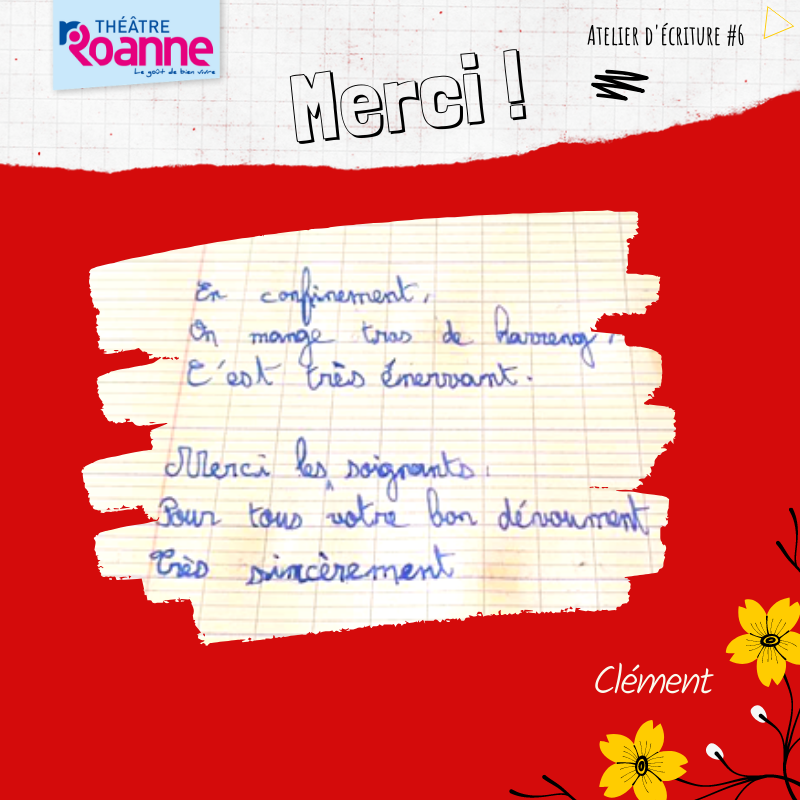 THÉÂTRE
Roanne
Le goût de bien vivre
ATELIER D'ÉCRITURE #6
Merci !
En confinement,
On mange tros de harreng,
C'est très énervant.
Merci les soignants.
Pour tous votre bon dévoument
Très sincèrement
Clément